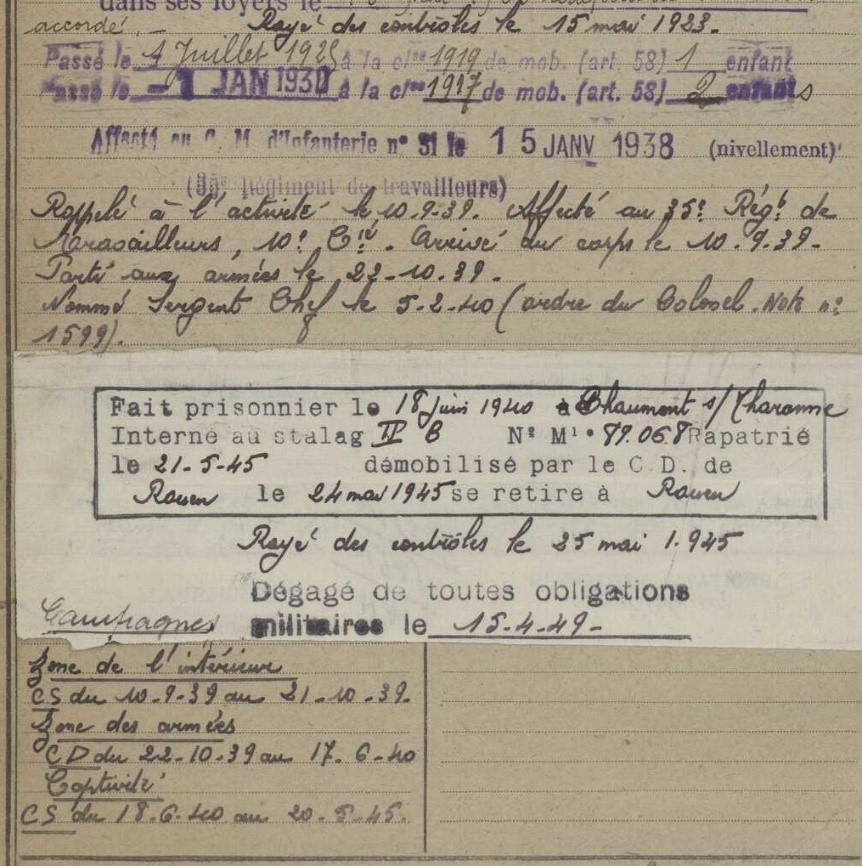 dans ses foyers le
accordé. Rayé des contrôles le 15 mai 1923.
Passé le 4 Juillet 1925 à la clsse 1919 de mob. (art. 58) 1 enfant
Passé le -1 JAN 1930 à la clsse 1917 de mob. (art. 58) 2 enfants
Affecté au C. M. d'Infanterie n° 31 le 15 JANV 1938 (nivellement)
(35e Régiment de travailleurs)
Rappelé à l'activité le 10.9.39. Affecté au 35e Régt de
Travailleurs, 10e Cie. Arrivé au corps le 10.9.39.
Parti aux armées le 22-10.39.
Nommé Sergent Chef le 5-2-40 (ordre du Colonel. Note n°
1599).
Fait prisonnier le 18 Juin 1940 à Chaumont s/
Interné au stalag II B N° Mle 87.068 Rapatrié
le 21-5-45 démobilisé par le C.D. de
Rouen le 24 mai 1945 se retire à Rouen
Rayé des contrôles le 25 mai 1.945
Dégagé de toutes obligations
Campagnes militaires le 15-4-49-
Zone de l'intérieur
CS du 10-9-39 au 21-10-39.
Zone des armées
CD du 22-10-39 au 17-6-40
Captivité
CS du 18-6-40 au 20-5-45.